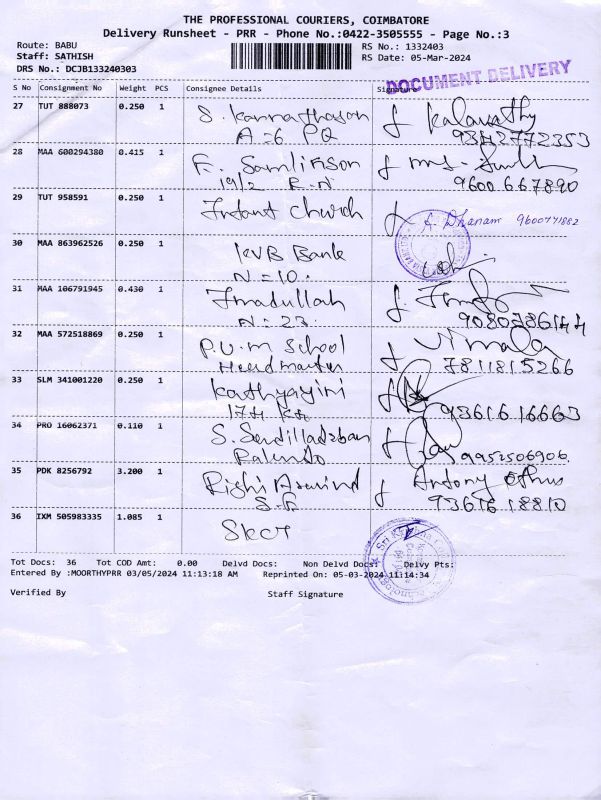 THE PROFESSIONAL COURIERS, COIMBATORE
Delivery Runsheet - PRR - Phone No.:0422-3505555 - Page No.:3
Route: BABU
Staff: SATHISH
DRS No.: DCJB133240303
RS No.: 1332403
RS Date: 05-Mar-2024
DOCUMENT DELIVERY
S No Consignment No Weight PCS Consignee Details Signature
27 TUT 888073 0.250 1 S. Kannathasan Kalavathy
A=6 PQ 9342772353
28 MAA 600294380 0.415 1 F. Samlinson
19/2 9600667890
29 TUT 958591 0.250 1 Infant Church A. Dhanam 9600771882
30 MAA 863962526 0.250 1 KVB Bank
N=10.
31 MAA 106791945 0.430 1 Imadullah
N=23.
32 MAA 572518869 0.250 1 P.U.M School Nimala
Headmaster 7811815266
33 SLM 341001220 0.250 1 Kathyayini
9361616663
34 PRO 16062371 0.110 1 S.
9952506906.
35 PDK 8256792 3.200 1 Rishi Antony
36 IXM 505983335 1.085 1 Skct
Sri Krishna
Tot Docs: 36 Tot COD Amt: 0.00 Delvd Docs: Non Delvd Docs: Delvy Pts:
Entered By :MOORTHYPRR 03/05/2024 11:13:18 AM Reprinted On: 05-03-2024 11:14:34
Verified By Staff Signature